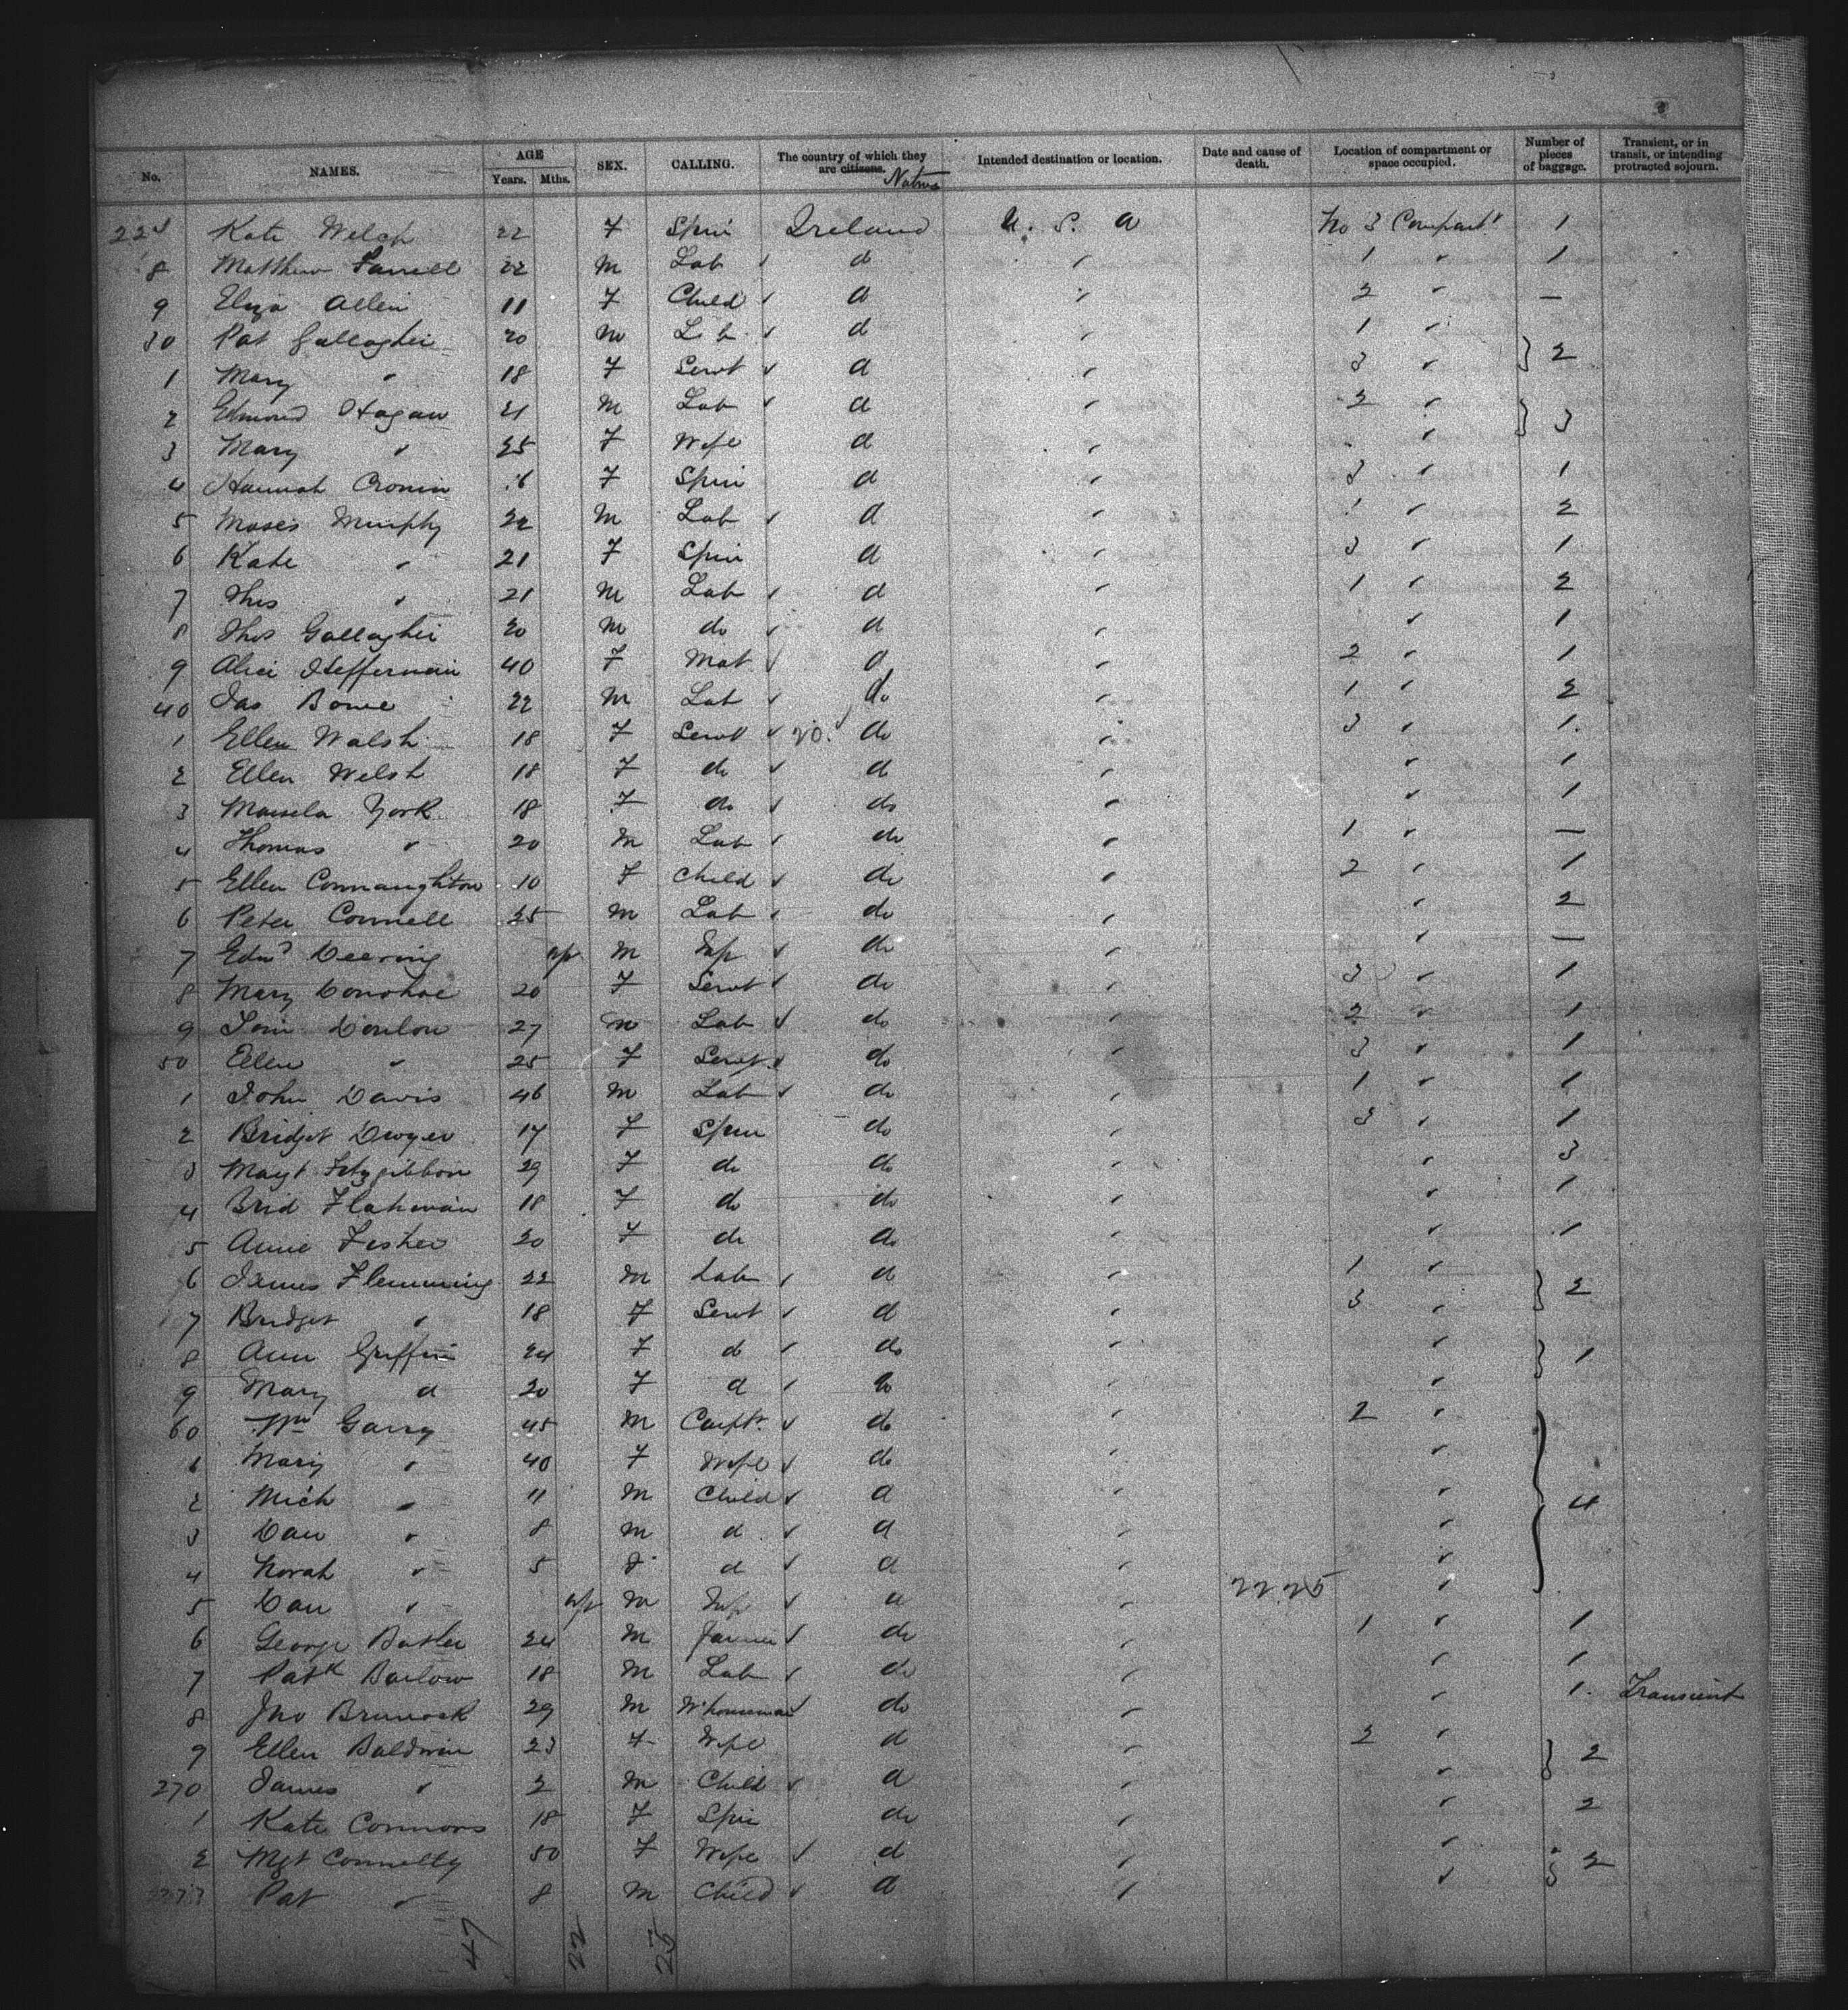 8
No. NAMES. AGE Years. Mths. SEX. CALLING. The country of which they are citizens. Natives Intended destination or location. Date and cause of death. Location of compartment or space occupied. Number of pieces of baggage. Transient, or in transit, or intending protracted sojourn.
Kate Welsh 22 F Spin Ireland U. S. A No 3 Compart 1
8 Matthew Farrell 22 M Lab d " 1 " 1
9 Eliza Allen 11 F Child d " 2 " —
30 Pat Gallagher 20 M Lab d " 1 " } 2
1 Mary " 18 F Servt d " 3 "
2 Edmond Hagan 21 M Lab d " 2 " } 3
3 Mary " 25 F Wife d " "
4 Hannah Cronin F Spin d " 3 " 1
5 Moses Murphy 22 M Lab d " 1 " 2
6 Kate " 21 F Spin d " 3 " 1
7 Thos " 21 M Lab d " 1 " 2
8 Thos Gallagher 20 M do d " " 1
9 Alice Heffernan 40 F Mat d " 2 " 1
40 Jas Bowe 22 M Lab do " 1 " 2
1 Ellen Walsh 18 F Servt 20. do " 3 " 1
2 Ellen Welsh 18 F do d " " 1
3 York 18 F do do " " 1
4 Thomas " 20 M Lab do " 1 " —
5 Ellen Connaughton 10 F Child do " 2 " 1
6 Peter Connell 25 M Lab do " " 2
7 Edwd Deering M Inf do " " —
8 Mary Donohoe 20 F Servt do " 3 " 1
9 Donlon 27 M Lab do " 2 " 1
50 Ellen " 25 F Servt do " 3 " 1
1 John Davis 46 M Lab do " 1 " 1
2 Bridget Dwyer 17 F Spin do " 3 " 1
3 Magt Fitzgibbon 29 F do do " " 3
4 Brid 18 F do do " " 1
5 Annie Fisher 20 F do do " " 1
6 James Flemming 22 M Lab d " 1 " } 2
7 Bridget " 18 F Servt d " 3 "
8 Ann Griffin 24 F d do " " } 1
9 Mary d 20 F d do " "
60 Wm Garry 45 M Carptr do " 2 " } 4
1 Mary " 40 F Wife do " "
2 Mich " 11 M Child d " "
3 Dan " 8 M d d " "
4 Norah " 5 F d d " "
5 Dan " M Inf d " 22 25 "
6 George Butler 24 M Farmer do " 1 " 1
7 Patk Barlow 18 M Lab do " " 1
8 Jno Brunock 29 M W'houseman do " " 1. Transient
9 Ellen Baldwin 23 F Wife d " 2 " } 2
270 James " 2 M Child d " "
1 Kate Connors 18 F Spin do " " 2
2 Mgt Connelly 50 F Wife d " " } 2
Pat " 8 M Child d " "
47 22 25